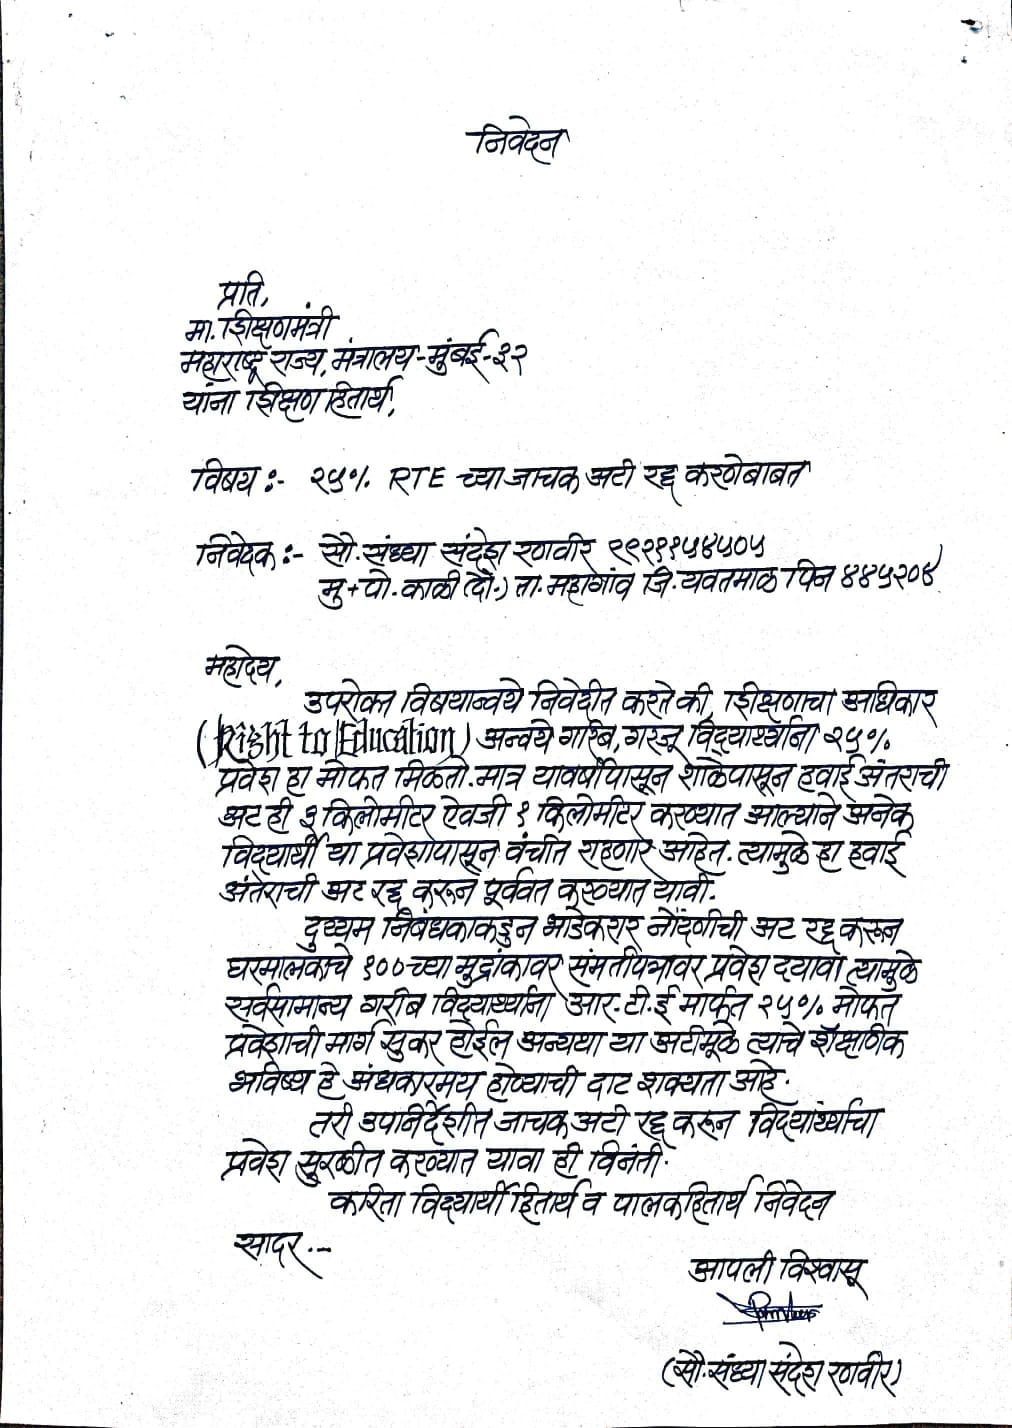 निवेदन
प्रति,
मा. शिक्षणमंत्री
महाराष्ट्र राज्य, मंत्रालय-मुंबई-३२
यांना शिक्षण हितार्थ,
विषय :- २५% RTE च्या जाचक अटी रद्द करणेबाबत
निवेदक :- सौ. संध्या संदेश रणवीर ९९२११५४५०५
मु + पो. काळी (दौ.) ता. महागांव जि. यवतमाळ पिन ४४५२०४
महोदय,
उपरोक्त विषयान्वये निवेदीत करते की, शिक्षणाचा अधिकार
(Right to Education) अन्वये गरिब, गरजू विद्यार्थ्यांना २५%
प्रवेश हा मोफत मिळतो. मात्र यावर्षीपासून शाळेपासून हवाई अंतराची
अट ही ३ किलोमीटर ऐवजी १ किलोमीटर करण्यात आल्याने अनेक
विद्यार्थी या प्रवेशापासून वंचीत राहणार आहेत. त्यामुळे हा हवाई
अंतराची अट रद्द करून पूर्ववत करण्यात यावी.
दुय्यम निबंधकाकडुन भाडेकरार नोंदणीची अट रद्द करून
घरमालकाचे १०० च्या मुद्रांकावर संमतीपत्रावर प्रवेश दयावा त्यामुळे
सर्वसामान्य गरीब विद्यार्थ्यांना आर. टी. ई मार्फत २५% मोफत
प्रवेशाची मार्ग सुकर होईल अन्यथा या अटीमूळे त्याचे शैक्षणिक
भविष्य हे अंधकारमय होण्याची दाट शक्यता आहे.
तरी उपनिर्देशीत जाचक अटी रद्द करून विद्यार्थ्यांचा
प्रवेश सुरळीत करण्यात यावा ही विनंती.
करिता विद्यार्थी हितार्थ व पालकहितार्थ निवेदन
सादर.--
आपली विश्वासू
(सौ. संध्या संदेश रणवीर)